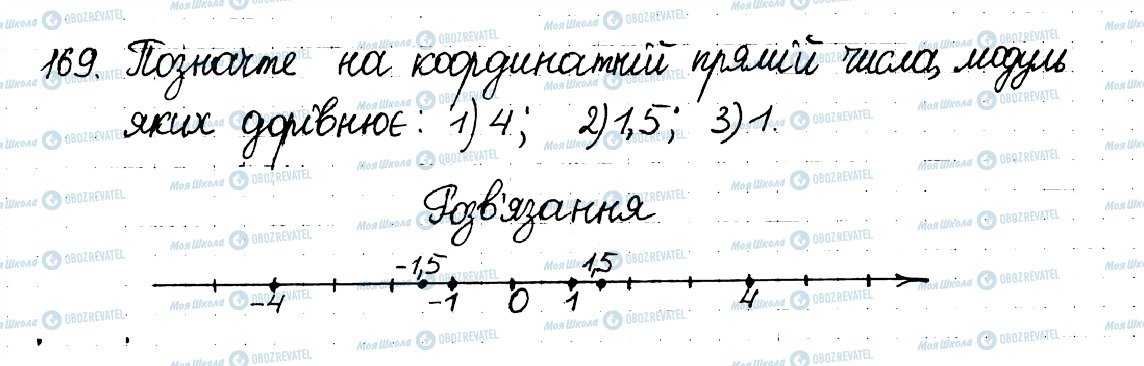 169. Позначте на координатній прямій числа, модуль
яких дорівнює: 1) 4; 2) 1,5; 3) 1.
Розв'язання
-1,5 1,5
-4 -1 0 1 4
МояШкола OBOZREVATEL